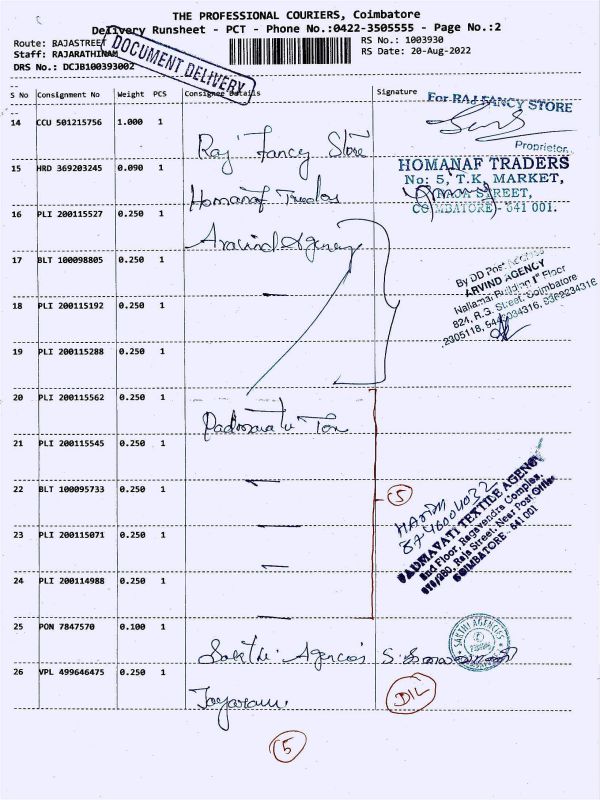 THE PROFESSIONAL COURIERS, Coimbatore
Delivery Runsheet - PCT - Phone No.:0422-3505555 - Page No.:2
Route: RAJASTREET
RS No.: 1003930
Staff: RAJARATHINAM
RS Date: 20-Aug-2022
DRS No.: DCJB100393002
DOCUMENT DELIVERY
S No Consignment No Weight PCS Consignee Details Signature
For RAJ FANCY STORE
14 CCU 501215756 1.000 1
Raj Fancy Store
Proprietor.
15 HRD 369203245 0.090 1
Homanaf Traders
HOMANAF TRADERS
No: 5, T.K. MARKET,
STREET,
COIMBATORE - 641 001.
16 PLI 200115527 0.250 1
Aravind Agency
17 BLT 100098805 0.250 1
By DD Post
ARVIND AGENCY
Nallamai Building 1st Floor
824, R.S. Street, Coimbatore
18 PLI 200115192 0.250 1
19 PLI 200115288 0.250 1
20 PLI 200115562 0.250 1
Padmavati Tex
21 PLI 200115545 0.250 1
22 BLT 100095733 0.250 1
5
PADMAVATI TEXTILE AGENCY
2nd Floor, Ragavendra Complex,
Raja Street, Near Post Office
COIMBATORE - 641 001
23 PLI 200115071 0.250 1
24 PLI 200114988 0.250 1
25 PON 7847570 0.100 1
Sakthi Agencies
SAKTHI AGENCIES
26 VPL 499646475 0.250 1
Jayaram
D/L
5